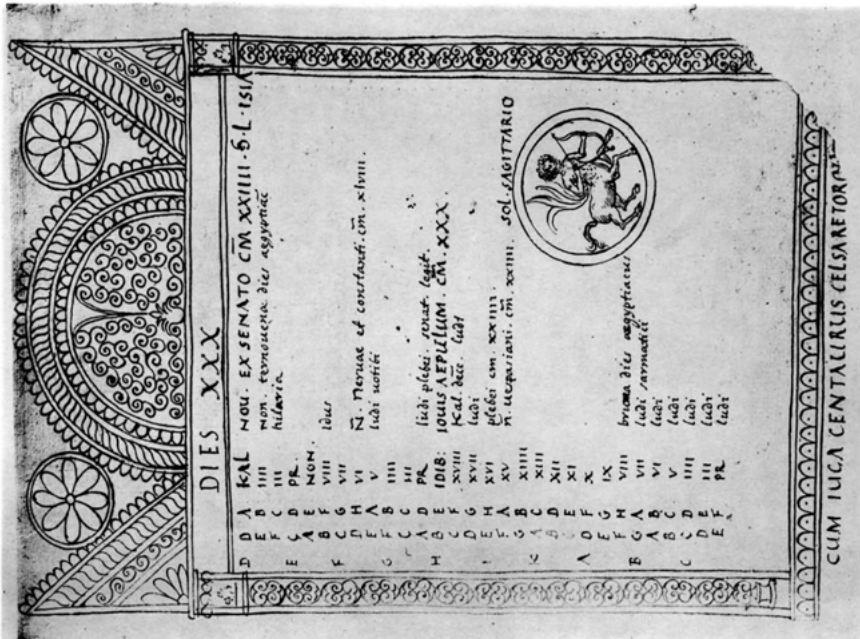 DIES XXX
D D A KAL NOU. EX SENATO CM XXIIII · S · L · ISIA
E B IIII non. ternouena dies aegyptiac
F C III hilaria
E G D PR.
A E NON.
B F VIII idus
F C G VII
D H VI N. neruae et constanti. cm. xlviii.
E A V ludi uotibi
G F B IIII
G C III
A D PR. ludi plebei. senat. legit.
H B E IDIB: IOUIS AEPULUM. CM. XXX.
C F XVIII kal. dece. ludi
D G XVII ludi
I E H XVI plebei cm. xxiiii.
F A XV n. uespasiani. cm. xxiiii. SOL SAGITTARIO
G B XIIII
K A C XIII
B D XII
C E XI
A D F X
E G IX
F H VIII bruma dies aegyptiacus
B G A VII ludi sarmatici
A B VI ludi
B C V ludi
C C D IIII ludi
D E III ludi
E F PR. ludi
CUM IUGA CENTAURUS CELSA RETOR